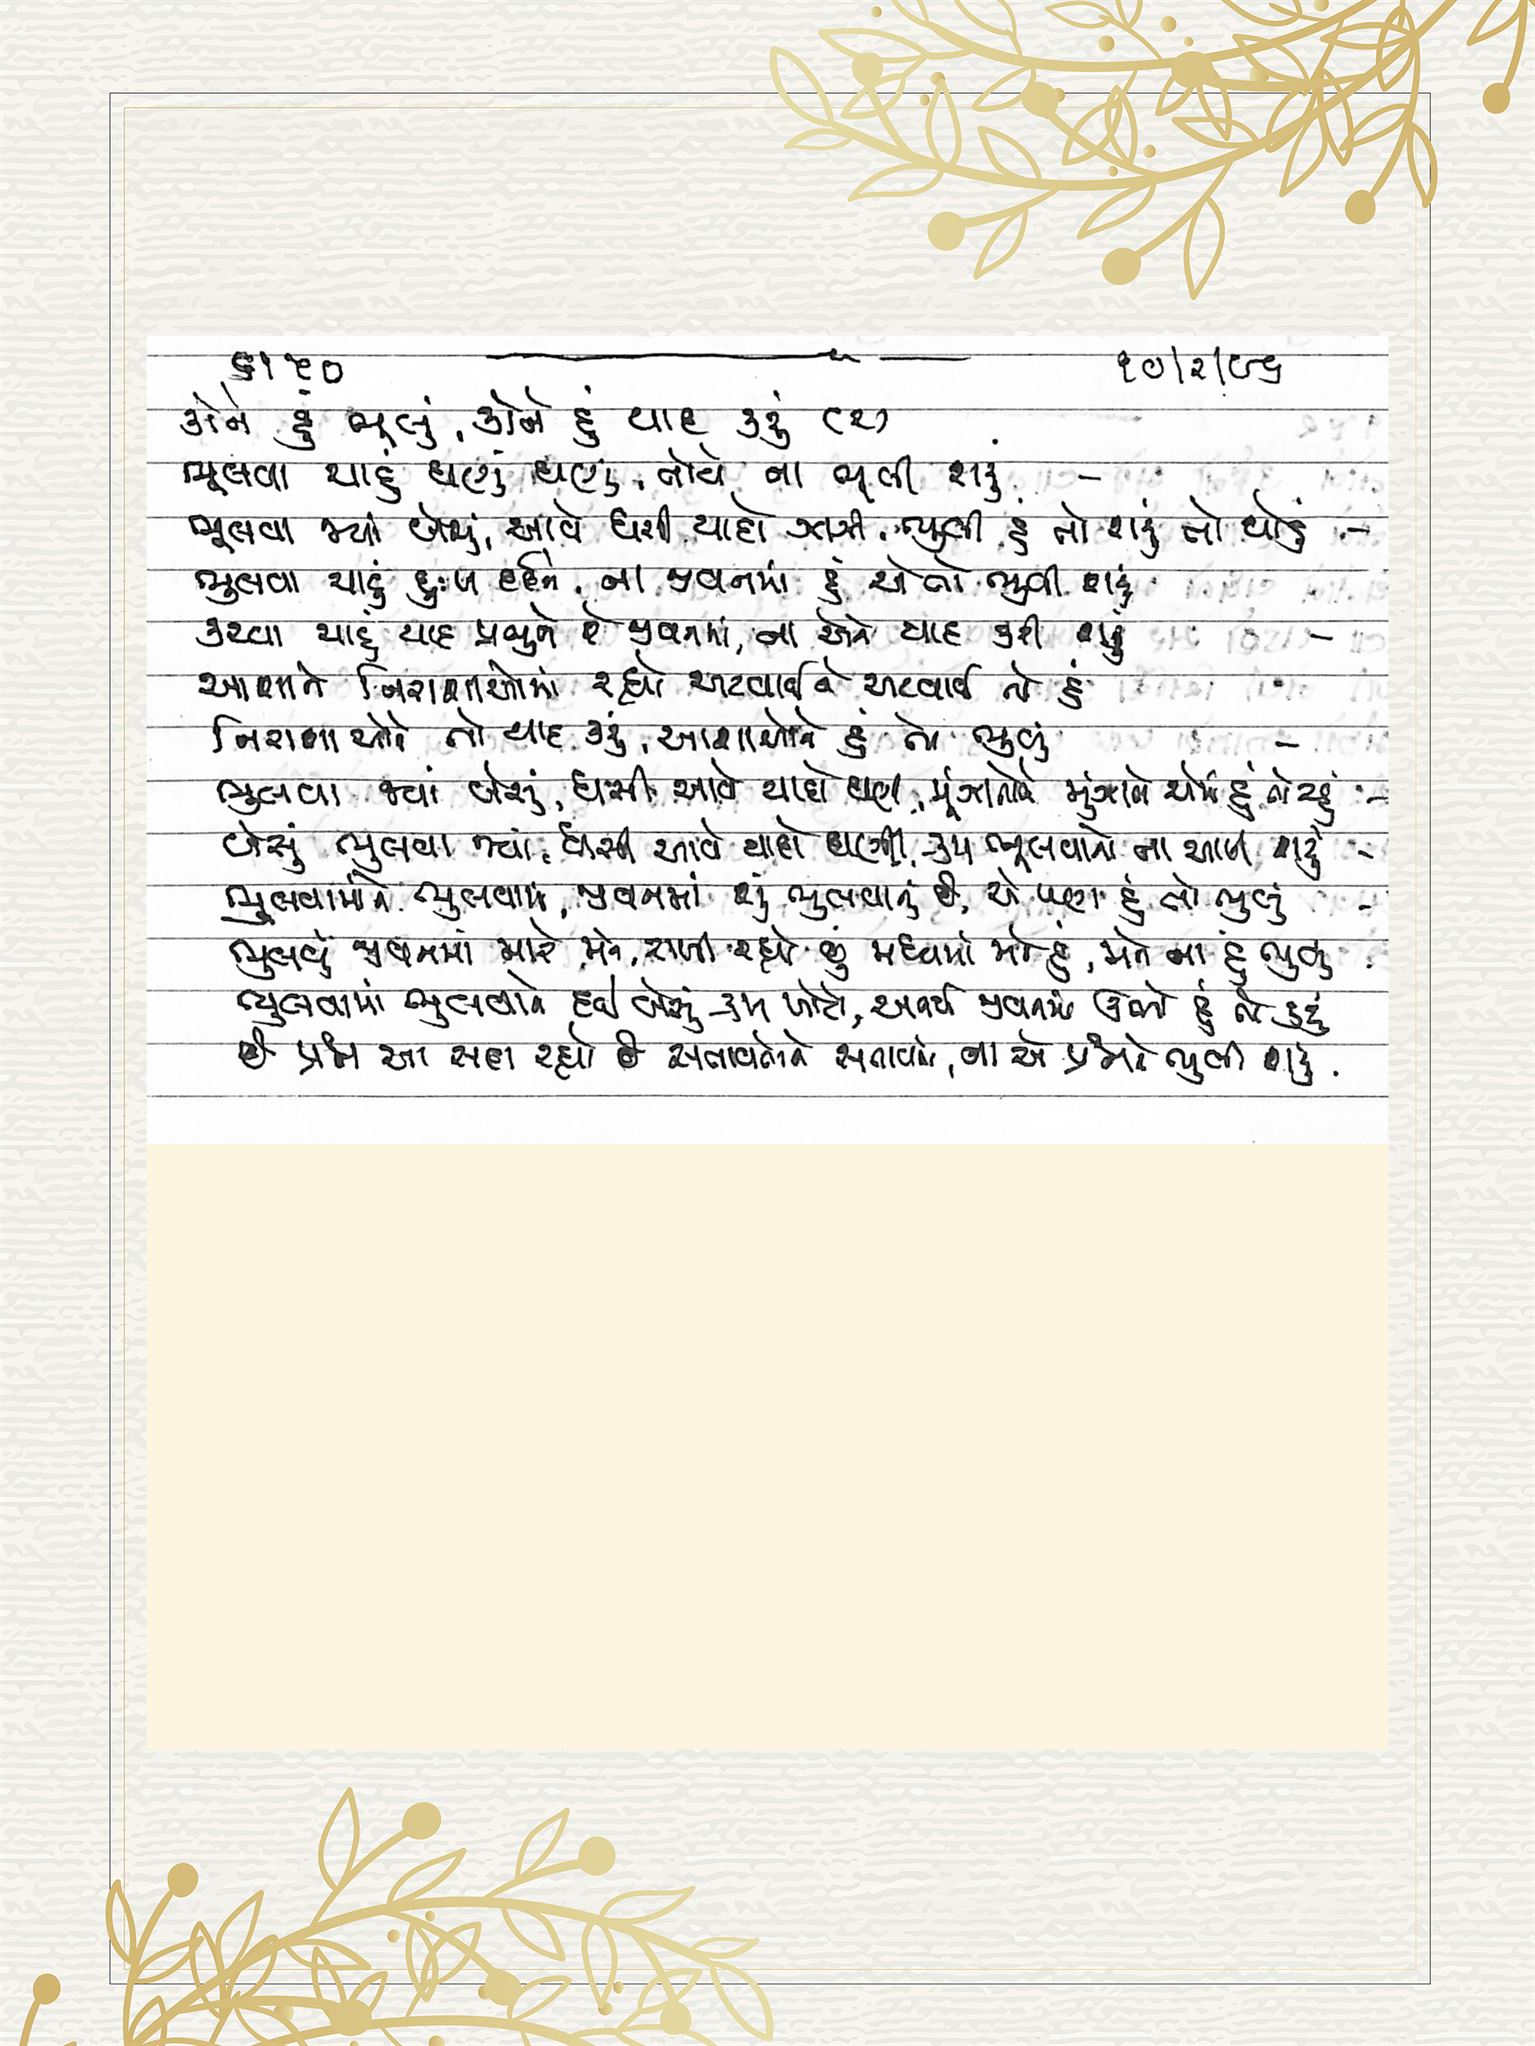 ૬૧૪૦ ૧૦/૨/૯૬
કોને હું ભૂલું, કોને હું યાદ કરું (૨)
ભૂલવા ચાહું ઘણું ઘણું, તોયે ના ભૂલી શકું -
ભૂલવા જ્યાં બેસું, આવે ધસી યાદો ભૂલી હું તો શકું તો થોડું -
ભુલવા ચાહું દુઃખ દર્દને, ના જીવનમાં હું એ તો ભુલી શકું
કરવા ચાહું યાદ પ્રભુને રે જીવનમાં, ના એને યાદ કરી શકું -
આશાને નિરાશાઓમાં રહ્યો અટવાઈને અટવાઈ તો હું
નિરાશાઓને તો યાદ કરું, આશાઓને હું તો ભુલું -
ભુલવા જ્યાં બેસું, ધસી આવે યાદો ઘણી, મૂંઝાતોને મુંઝાતો એમાં હું તો રહું -
બેસું ભુલવા જ્યાં, ધસી આવે યાદો ઘણી, ક્રમ ભૂલવાનો ના ખાળી શકું -
ભુલવામાંને ભુલવામાં, જીવનમાં શું ભુલવાનું છે, એ પણ હું તો ભુલું -
ભુલવું જીવનમાં મારે મને, રાખી રહ્યો છું મધ્યમાં મને હું, મને ના હું ભુલું .
ભુલવામાં ભુલવાને દઈ બેસું ક્રમ ખોટો, અનર્થ જીવનમાં ઉભો હું તો કરું
છે પ્રશ્ન આ સદા રહ્યો છે સતાવતોને સતાવતો, ના એ પ્રશ્નને ભુલી શકું .